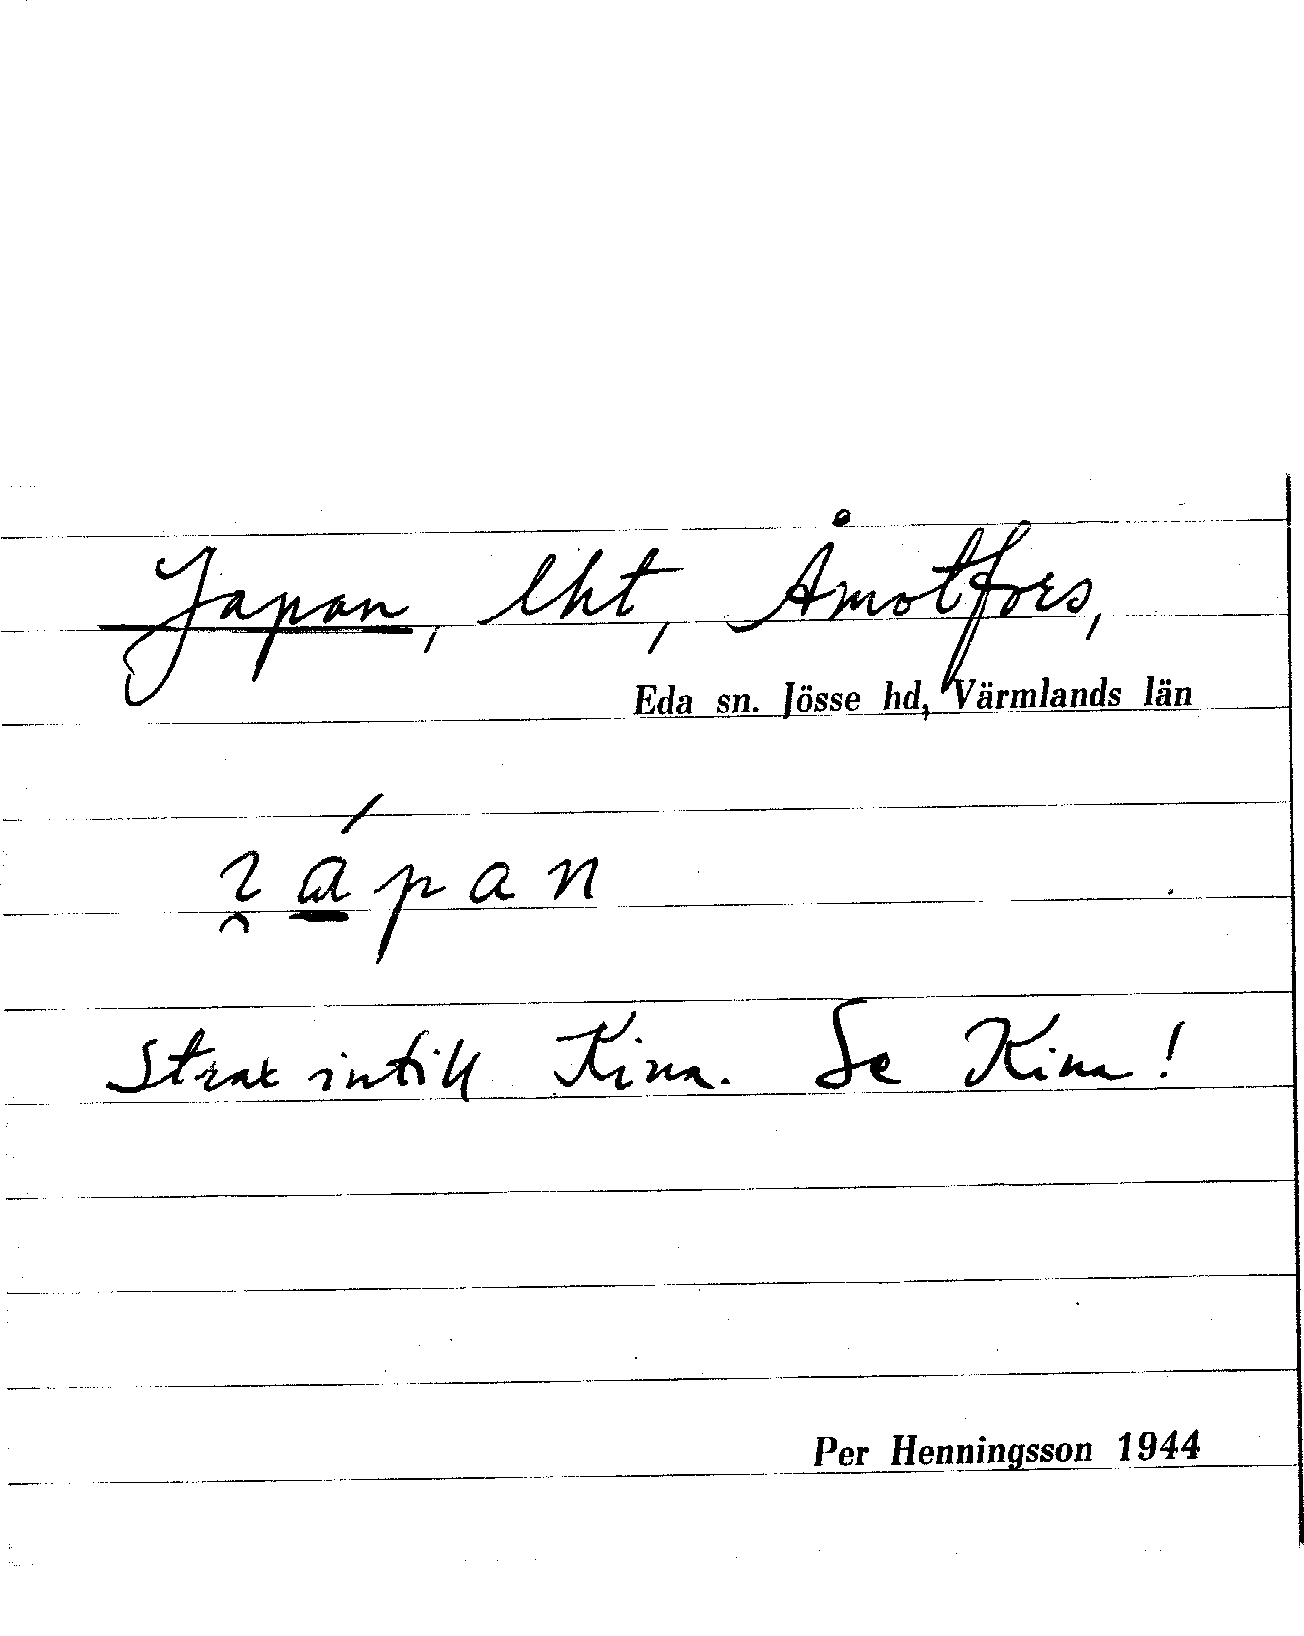 Japan, lht, Åmotfors,
Eda sn. Jösse hd, Värmlands län
ı̯ápan
Strax intill Kina. Se Kina!
Per Henningsson 1944